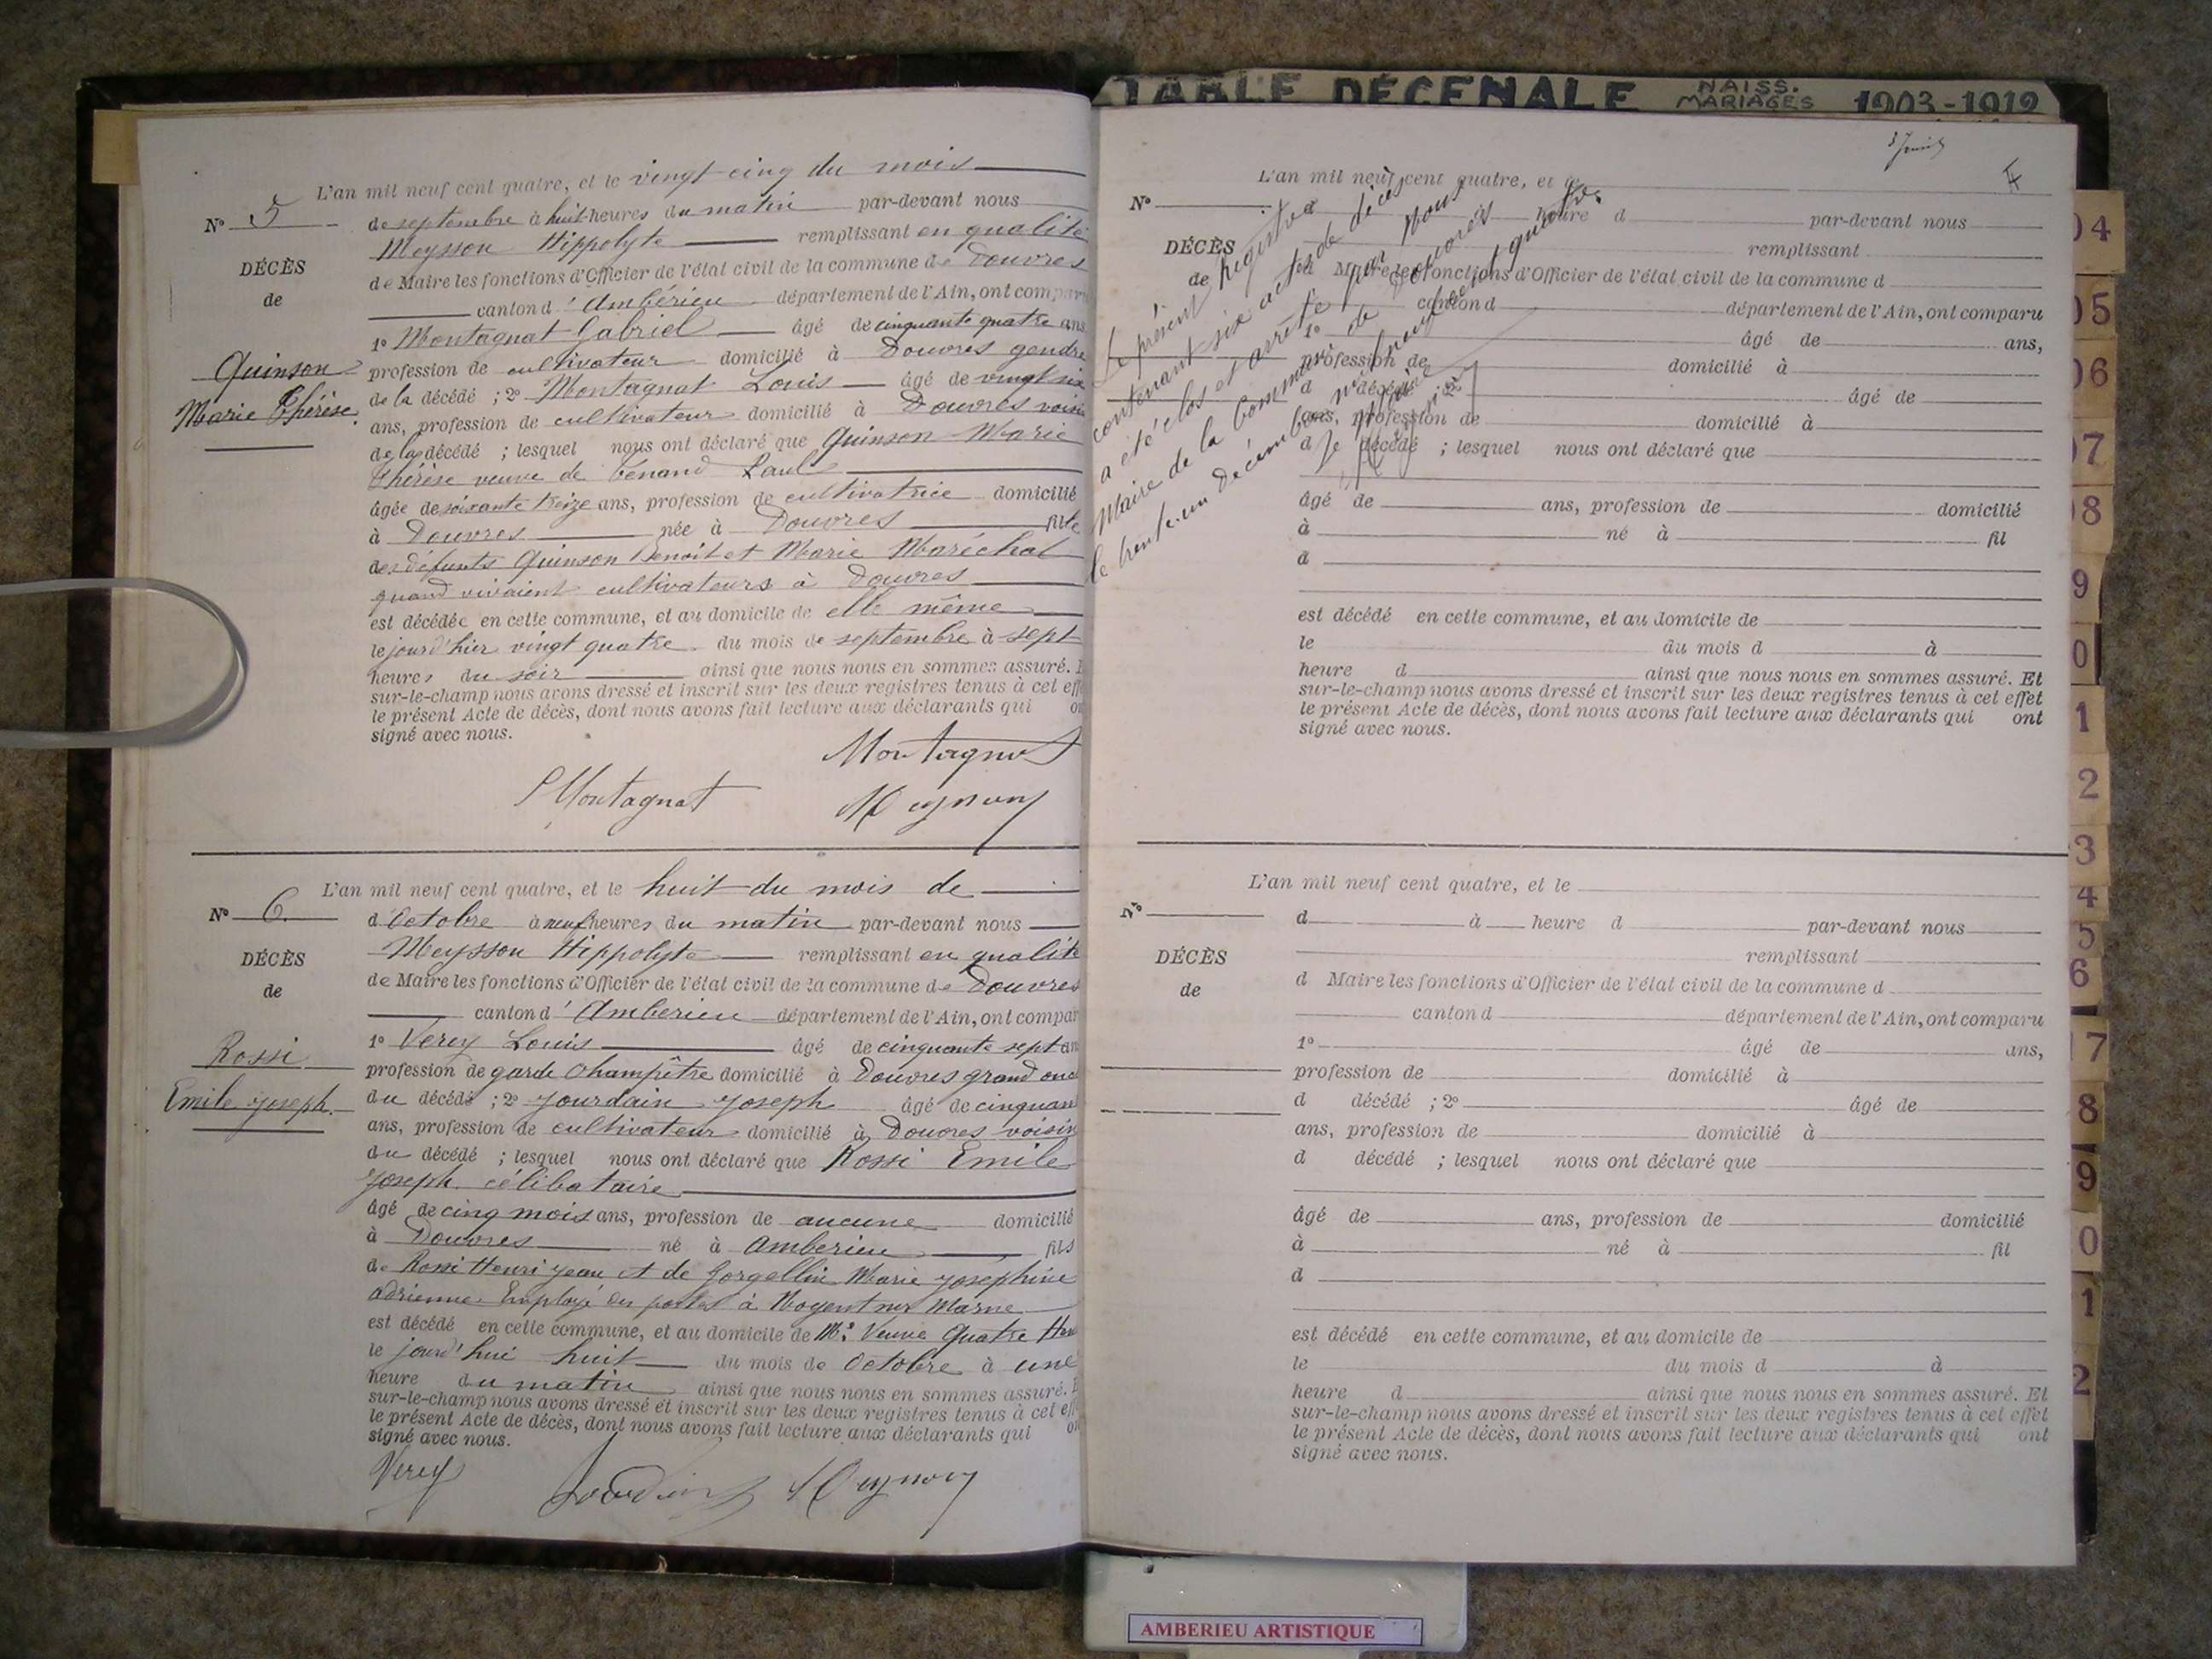 L'an mil neuf cent quatre, et le vingt-cinq du mois
N° 5 de septembre à huit heures du matin par-devant nous
Meysson Hippolyte remplissant en qualité
DÉCÈS
de Maire les fonctions d'Officier de l'état civil de la commune de Douvres
de
canton d'Ambérieu département de l'Ain, ont comparu
1° Montagnat Gabriel âgé de cinquante quatre ans
Quinson
profession de cultivateur domicilié à Douvres gendre
de la décédé ; 2° Montagnat Louis âgé de vingt six
Marie Thérèse.
ans, profession de cultivateur domicilié à Douvres voisin
de la décédé ; lesquel nous ont déclaré que Quinson Marie
Thérèse veuve de Paul
âgée de soixante treize ans, profession de cultivatrice domicilié
à Douvres née à Douvres fille
des défunts Quinson Benoit et Marie Maréchal
quand vivaient cultivateurs à Douvres
est décédée en cette commune, et au domicile de elle même
le jourd'hier vingt quatre du mois de septembre à sept
heures du soir ainsi que nous nous en sommes assuré. E
sur-le-champ nous avons dressé et inscrit sur les deux registres tenus à cet eff
le présent Acte de décès, dont nous avons fait lecture aux déclarants qui on
signé avec nous.
Montagnat
Montagnat Meysson
L'an mil neuf cent quatre, et le huit du mois de
N° 6. d'Octobre à neuf heures du matin par-devant nous
Meysson Hippolyte remplissant en qualité
DÉCÈS
de Maire les fonctions d'Officier de l'état civil de la commune de Douvres
de
canton d'Amberieu département de l'Ain, ont compar
1° Verey Louis âgé de cinquante sept an
Rossi
profession de garde Champêtre domicilié à Douvres grand onc
Emile Joseph.
du décédé ; 2° Jourdain Joseph âgé de cinquan
ans, profession de cultivateur domicilié à Douvres voisin
du décédé ; lesquel nous ont déclaré que Rossi Emile
Joseph célibataire
âgé de cinq mois ans, profession de aucune domicilié
à Douvres né à Amberieu fils
de Rossi Henri Jean et de Gorgellin Marie Josephine
Adrienne Employé des postes à Nogent sur Marne
est décédé en cette commune, et au domicile de Me Veuve Quatre
le jourd'hui huit du mois de Octobre à une
heure du matin ainsi que nous nous en sommes assuré. E
sur-le-champ nous avons dressé et inscrit sur les deux registres tenus à cet eff
le présent Acte de décès, dont nous avons fait lecture aux déclarants qui on
signé avec nous.
Verey Jourdain Meysson
TABLE DÉCENALE NAISS. MARIAGES 1903-1912
L'an mil neuf cent quatre, et le
N° heure d par-devant nous
DÉCÈS remplissant
de
d Maire les fonctions d'Officier de l'état civil de la commune d
canton d département de l'Ain, ont comparu
1° âgé de ans,
profession de domicilié à
d décédé ; 2° âgé de
ans, profession de domicilié à
d décédé ; lesquel nous ont déclaré que
âgé de ans, profession de domicilié
à né à fil
d
est décédé en cette commune, et au domicile de
le du mois d à
heure d ainsi que nous nous en sommes assuré. Et
sur-le-champ nous avons dressé et inscrit sur les deux registres tenus à cet effet
le présent Acte de décès, dont nous avons fait lecture aux déclarants qui ont
signé avec nous.
Le présent Registre
contenant six actes de décès
a été clos et arrêté par Nous
Maire de la Commune de Douvres
le trente-un Décembre mil neuf cent quatre.
L'an mil neuf cent quatre, et le
N° d à heure d par-devant nous
remplissant
DÉCÈS
d Maire les fonctions d'Officier de l'état civil de la commune d
de
canton d département de l'Ain, ont comparu
1° âgé de ans,
profession de domicilié à
d décédé ; 2° âgé de
ans, profession de domicilié à
d décédé ; lesquel nous ont déclaré que
âgé de ans, profession de domicilié
à né à fil
d
est décédé en cette commune, et au domicile de
le du mois d à
heure d ainsi que nous nous en sommes assuré. Et
sur-le-champ nous avons dressé et inscrit sur les deux registres tenus à cet effet
le présent Acte de décès, dont nous avons fait lecture aux déclarants qui ont
signé avec nous.
04
05
06
07
08
9
0
1
2
3
4
5
6
17
8
9
0
1
2
AMBERIEU ARTISTIQUE